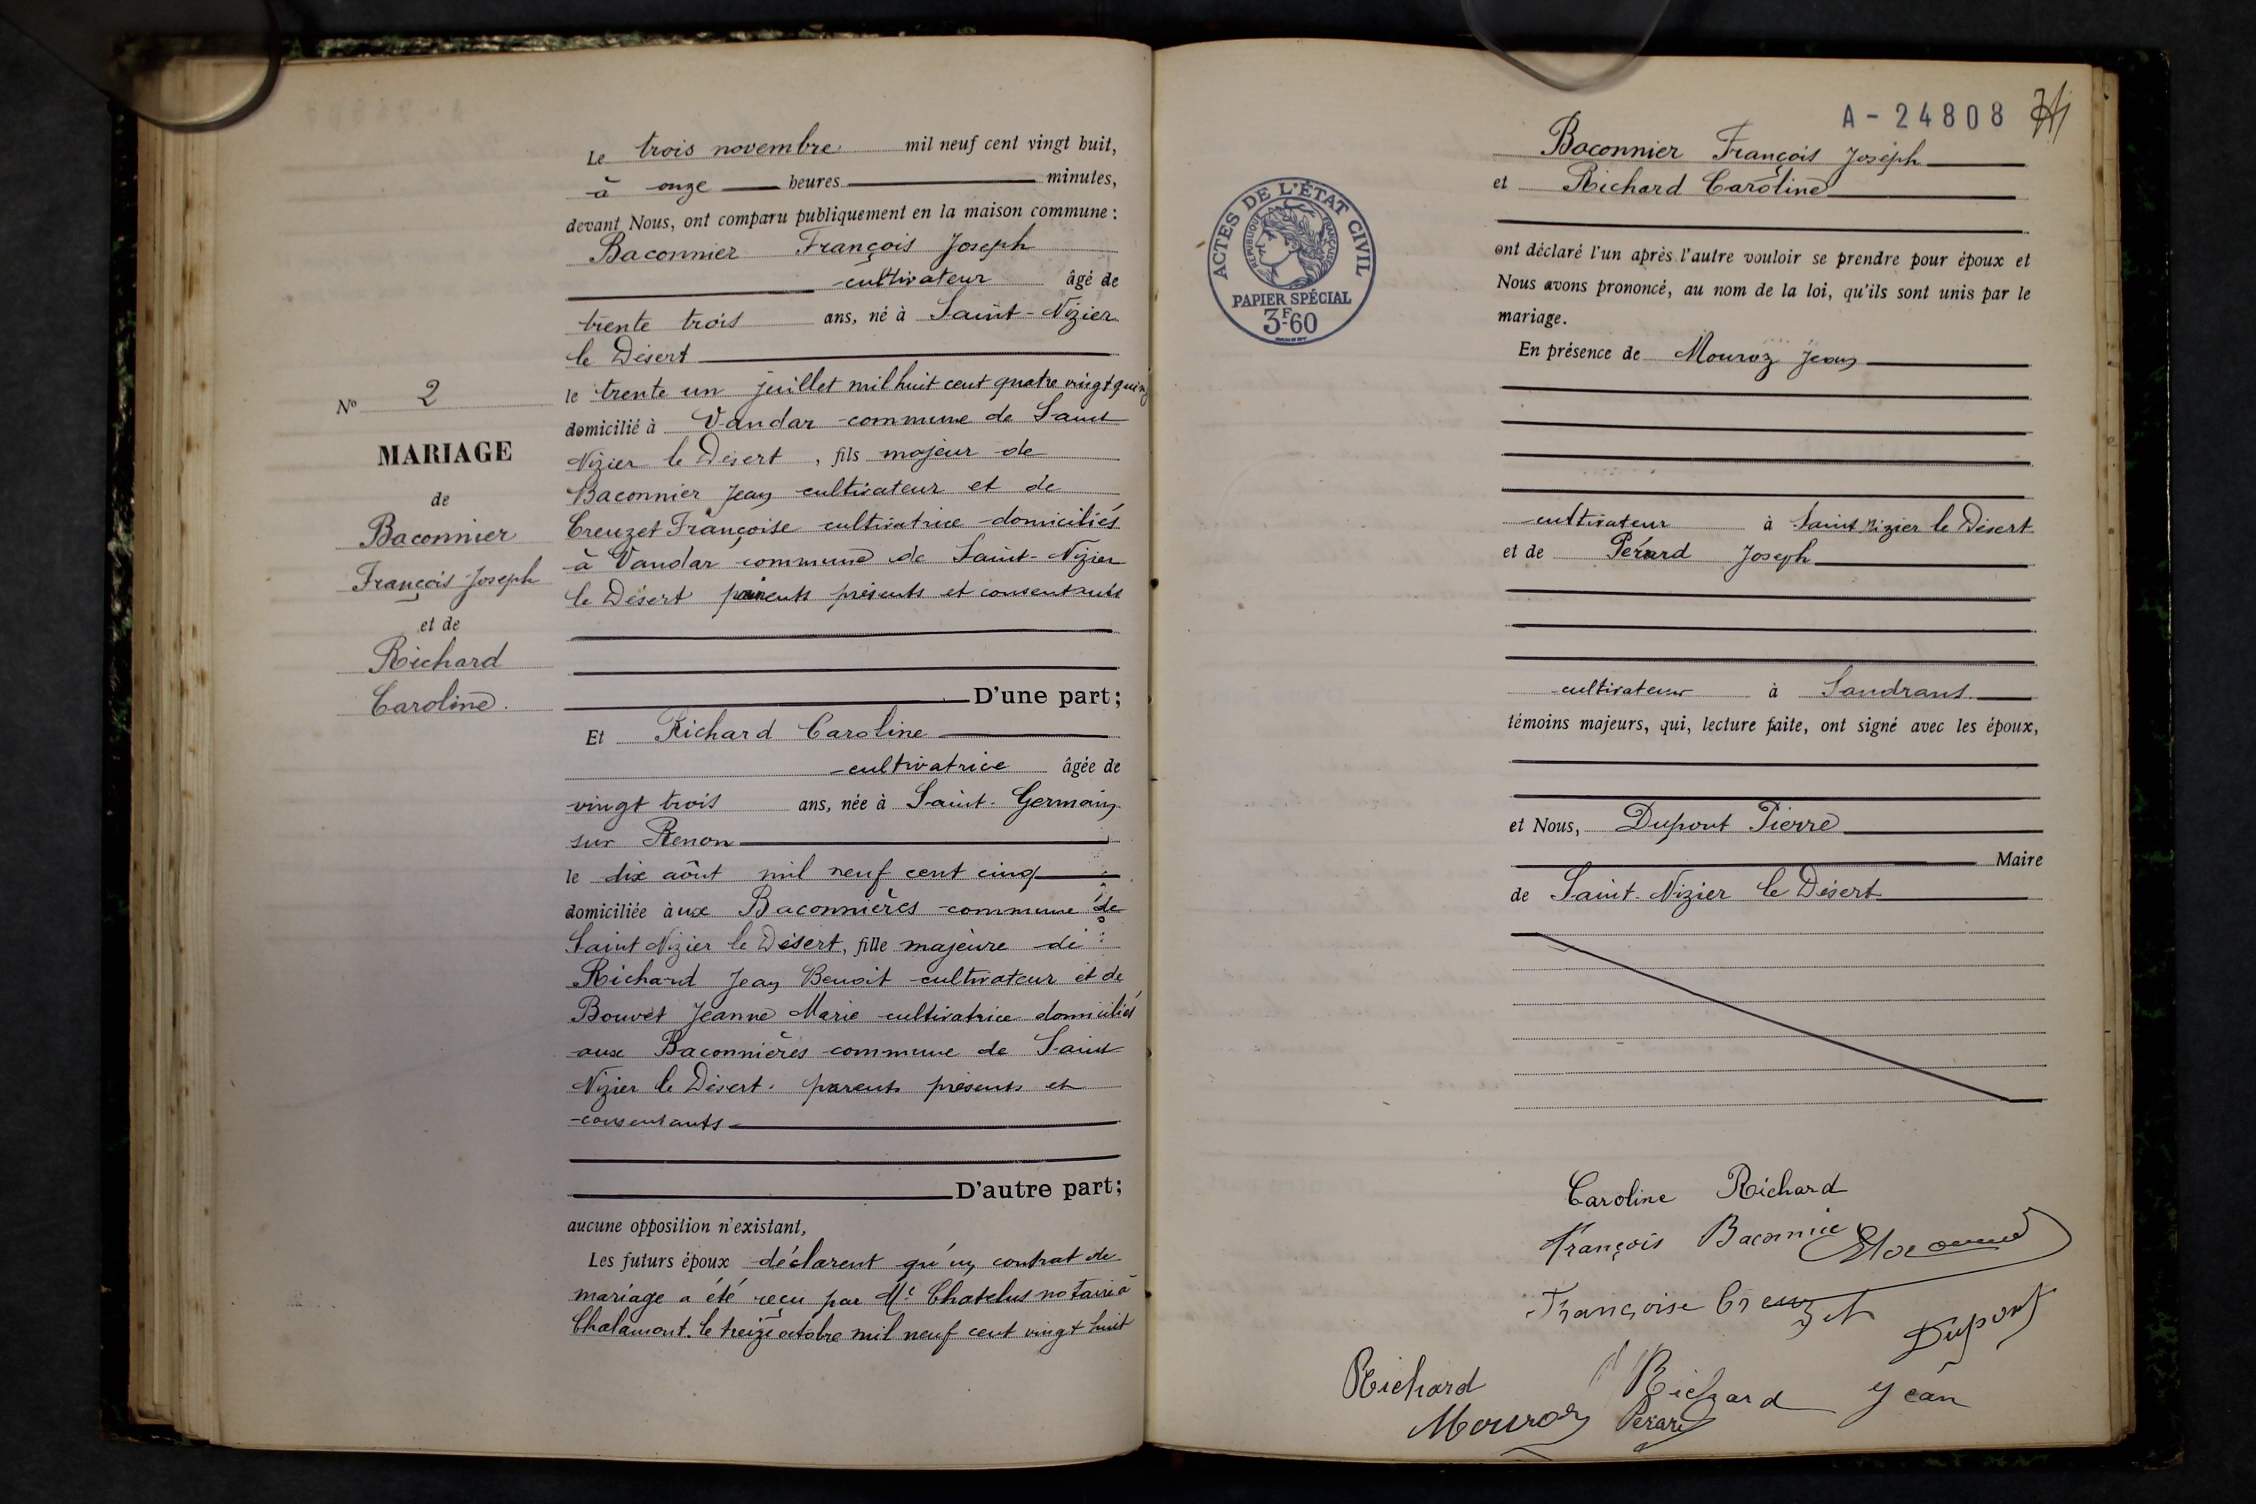 Le trois novembre mil neuf cent vingt huit,
à onze heures minutes,
devant Nous, ont comparu publiquement en la maison commune :
Baconnier François Joseph
cultivateur âgé de
trente trois ans, né à Saint-Nizier
le Désert
le trente un juillet mil huit cent quatre vingt quinz
domicilié à Vandar commune de Saint
Nizier le Désert, fils majeur de
Baconnier Jean cultivateur et de
Creuzet Françoise cultivatrice domiciliés
à Vandar commune de Saint-Nizier
le Désert parents présents et consentants
D'une part;
N° 2
MARIAGE
de
Baconnier
François-Joseph
et de
Richard
Caroline.
Et Richard Caroline
cultivatrice âgée de
vingt trois ans, née à Saint-Germain
sur Renon
le dix août mil neuf cent cinq
domiciliée àux Baconnières commune de
Saint Nizier le Désert, fille majeure de
Richard Jean Benoit cultivateur et de
Bouvet Jeanne Marie cultivatrice domiciliés
aux Baconnières commune de Saint
Nizier le Désert. parents présents et
consentants
D'autre part;
aucune opposition n'existant,
Les futurs époux déclarent qu'un contrat de
mariage a été reçu par Me Chatelus notaire à
Chalamont. le treize octobre mil neuf cent vingt huit
A-24808
ACTES DE L'ÉTAT CIVIL
RÉPUBLIQUE FRANÇAISE
PAPIER SPÉCIAL
3F60
Baconnier François Joseph
et Richard Caroline
ont déclaré l'un après l'autre vouloir se prendre pour époux et
Nous avons prononcé, au nom de la loi, qu'ils sont unis par le
mariage.
En présence de Mouroz Jean
cultivateur à Saint Nizier le Désert
et de Pérard Joseph
cultivateur à Sandrans
témoins majeurs, qui, lecture faite, ont signé avec les époux,
et Nous, Dupont Pierre
Maire
de Saint-Nizier le Désert
Caroline Richard
François Baconnie
Françoise Creuzet
Dupont
Richard
Richard Jean
Mouroz Pérard